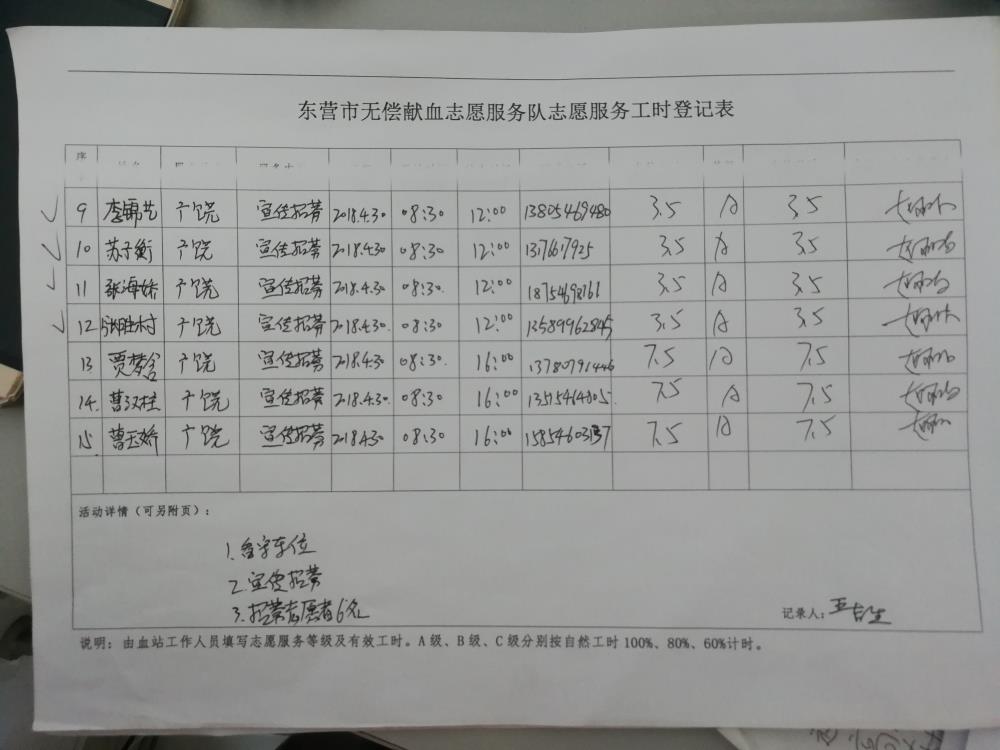 东营市无偿献血志愿服务队志愿服务工时登记表
序
9 李锦艺 广饶 宣传招募 2018.4.30 08:30 12:00 13805469480 3.5 A 3.5
10 苏子衡 广饶 宣传招募 2018.4.30 08:30 12:00 1376617925 3.5 A 3.5
11 张海娇 广饶 宣传招募 2018.4.30 08:30. 12:00 18754698161 3.5 A 3.5
12 张胜村 广饶 宣传招募 2018.4.30. 08:30 12:00 13589962845 3.5 A 3.5
13 贾梦含 广饶 宣传招募 2018.4.30 08:30. 16:00 13780791446 7.5 A 7.5
14. 曹汉柱 广饶 宣传招募 2018.4.30. 08:30 16:00 7.5 A 7.5
15. 曹玉娇 广饶 宣传招募 2018.4.30 08:30 16:00 7.5 A 7.5
活动详情（可另附页）：
1. 车位
2. 宣传招募
3. 招募志愿者6名
记录人：
说明：由血站工作人员填写志愿服务等级及有效工时。A级、B级、C级分别按自然工时100%、80%、60%计时。